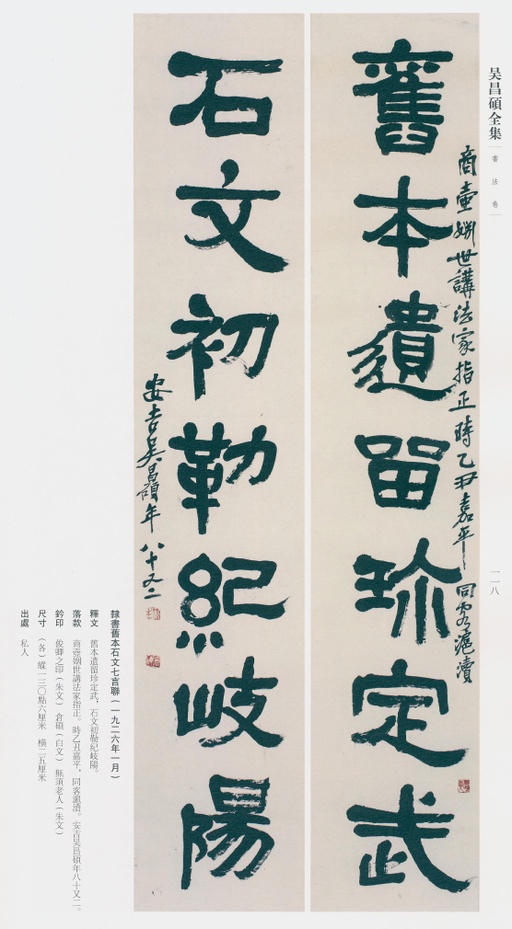 吴昌碩全集
書法卷
一一八
商壺姻世講法家指正時乙丑嘉平同客滬瀆
舊本遺留珍定武
石文初勒紀岐陽
安吉吴昌碩年八十又二
隸書舊本石文七言聯（一九二六年一月）
釋文　舊本遺留珍定武，石文初勒紀岐陽。
落款　商壺姻世講法家指正。時乙丑嘉平，同客滬瀆。安吉吴昌碩年八十又二。
鈐印　俊卿之印（朱文）　倉碩（白文）　無須老人（朱文）
尺寸　（各）縱一三〇點六厘米　橫二五厘米
出處　私人